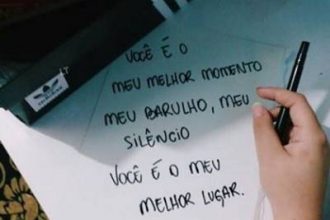 VOCÊ É O
MEU MELHOR MOMENTO
MEU BARULHO, MEU
SILÊNCIO
VOCÊ É O MEU
MELHOR LUGAR.